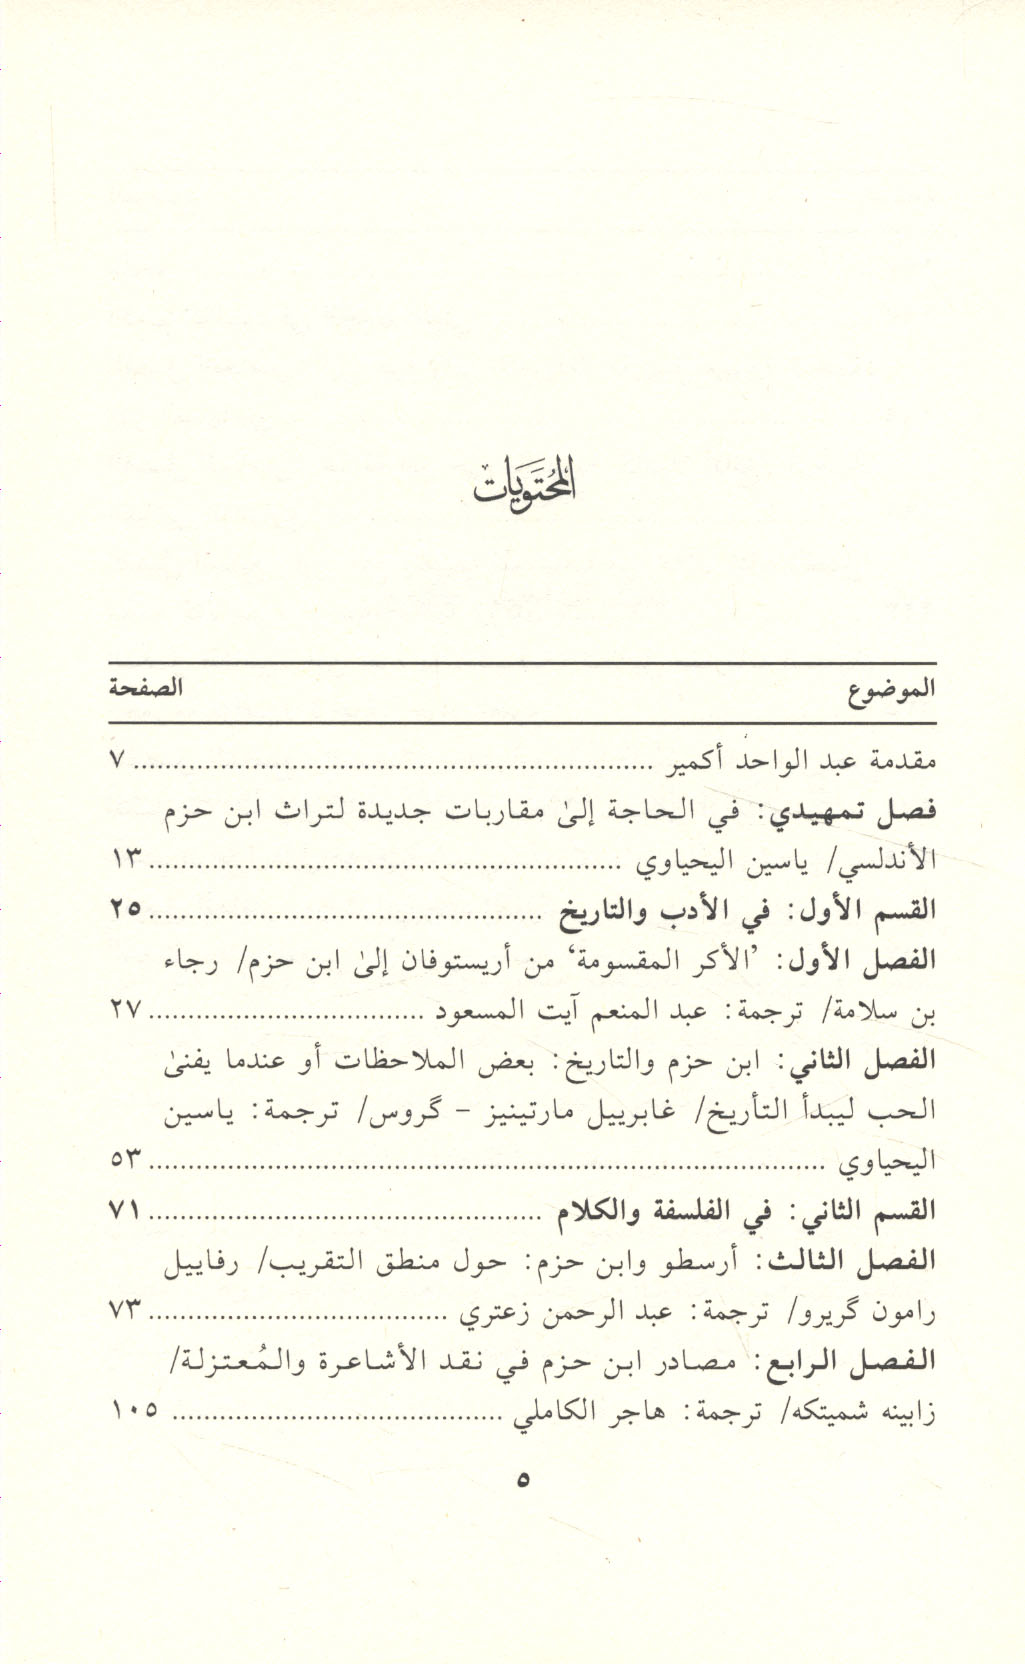 المُحتَوَيات
الموضوع الصفحة
مقدمة عبد الواحد أكمير ................................................................. ٧
فصل تمهيدي: في الحاجة إلىٰ مقاربات جديدة لتراث ابن حزم
الأندلسي/ ياسين اليحياوي ........................................................... ١٣
القسم الأول: في الأدب والتاريخ ................................................. ٢٥
الفصل الأول: ’الأكر المقسومة‘ من أريستوفان إلىٰ ابن حزم/ رجاء
بن سلامة/ ترجمة: عبد المنعم آيت المسعود ................................... ٢٧
الفصل الثاني: ابن حزم والتاريخ: بعض الملاحظات أو عندما يفنىٰ
الحب ليبدأ التأريخ/ غابرييل مارتينيز - گروس/ ترجمة: ياسين
اليحياوي ..................................................................................... ٥٣
القسم الثاني: في الفلسفة والكلام ................................................. ٧١
الفصل الثالث: أرسطو وابن حزم: حول منطق التقريب/ رفاييل
رامون گريرو/ ترجمة: عبد الرحمن زعتري ..................................... ٧٣
الفصل الرابع: مصادر ابن حزم في نقد الأشاعرة والمُعتزلة/
زابينه شميتكه/ ترجمة: هاجر الكاملي ......................................... ١٠٥
٥